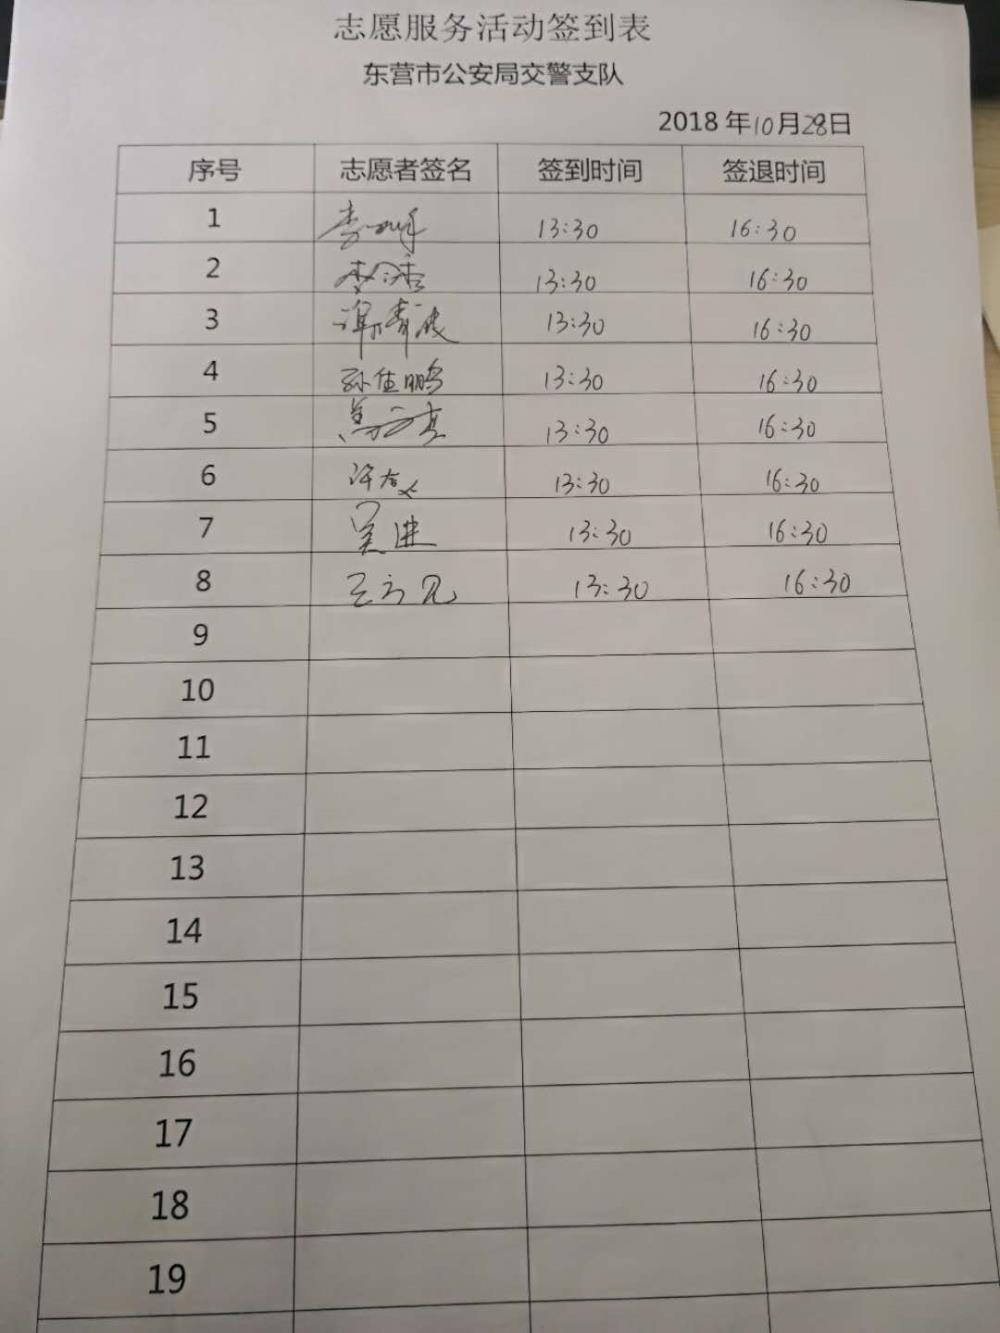 志愿服务活动签到表
东营市公安局交警支队
2018 年10月28日
序号 志愿者签名 签到时间 签退时间
1 13:30 16:30
2 13:30 16:30
3 13:30 16:30
4 孙佳鹏 13:30 16:30
5 13:30 16:30
6 13:30 16:30
7 吴进 13:30 16:30
8 13:30 16:30
9
10
11
12
13
14
15
16
17
18
19